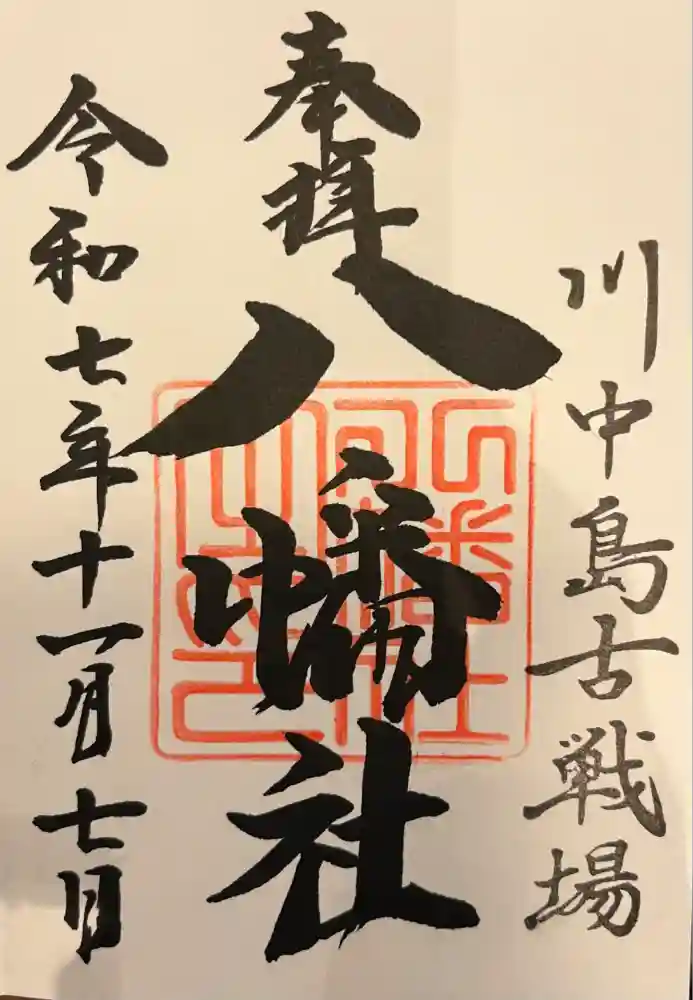 川中島古戦場
奉拝
八幡社
令和七年十一月七日